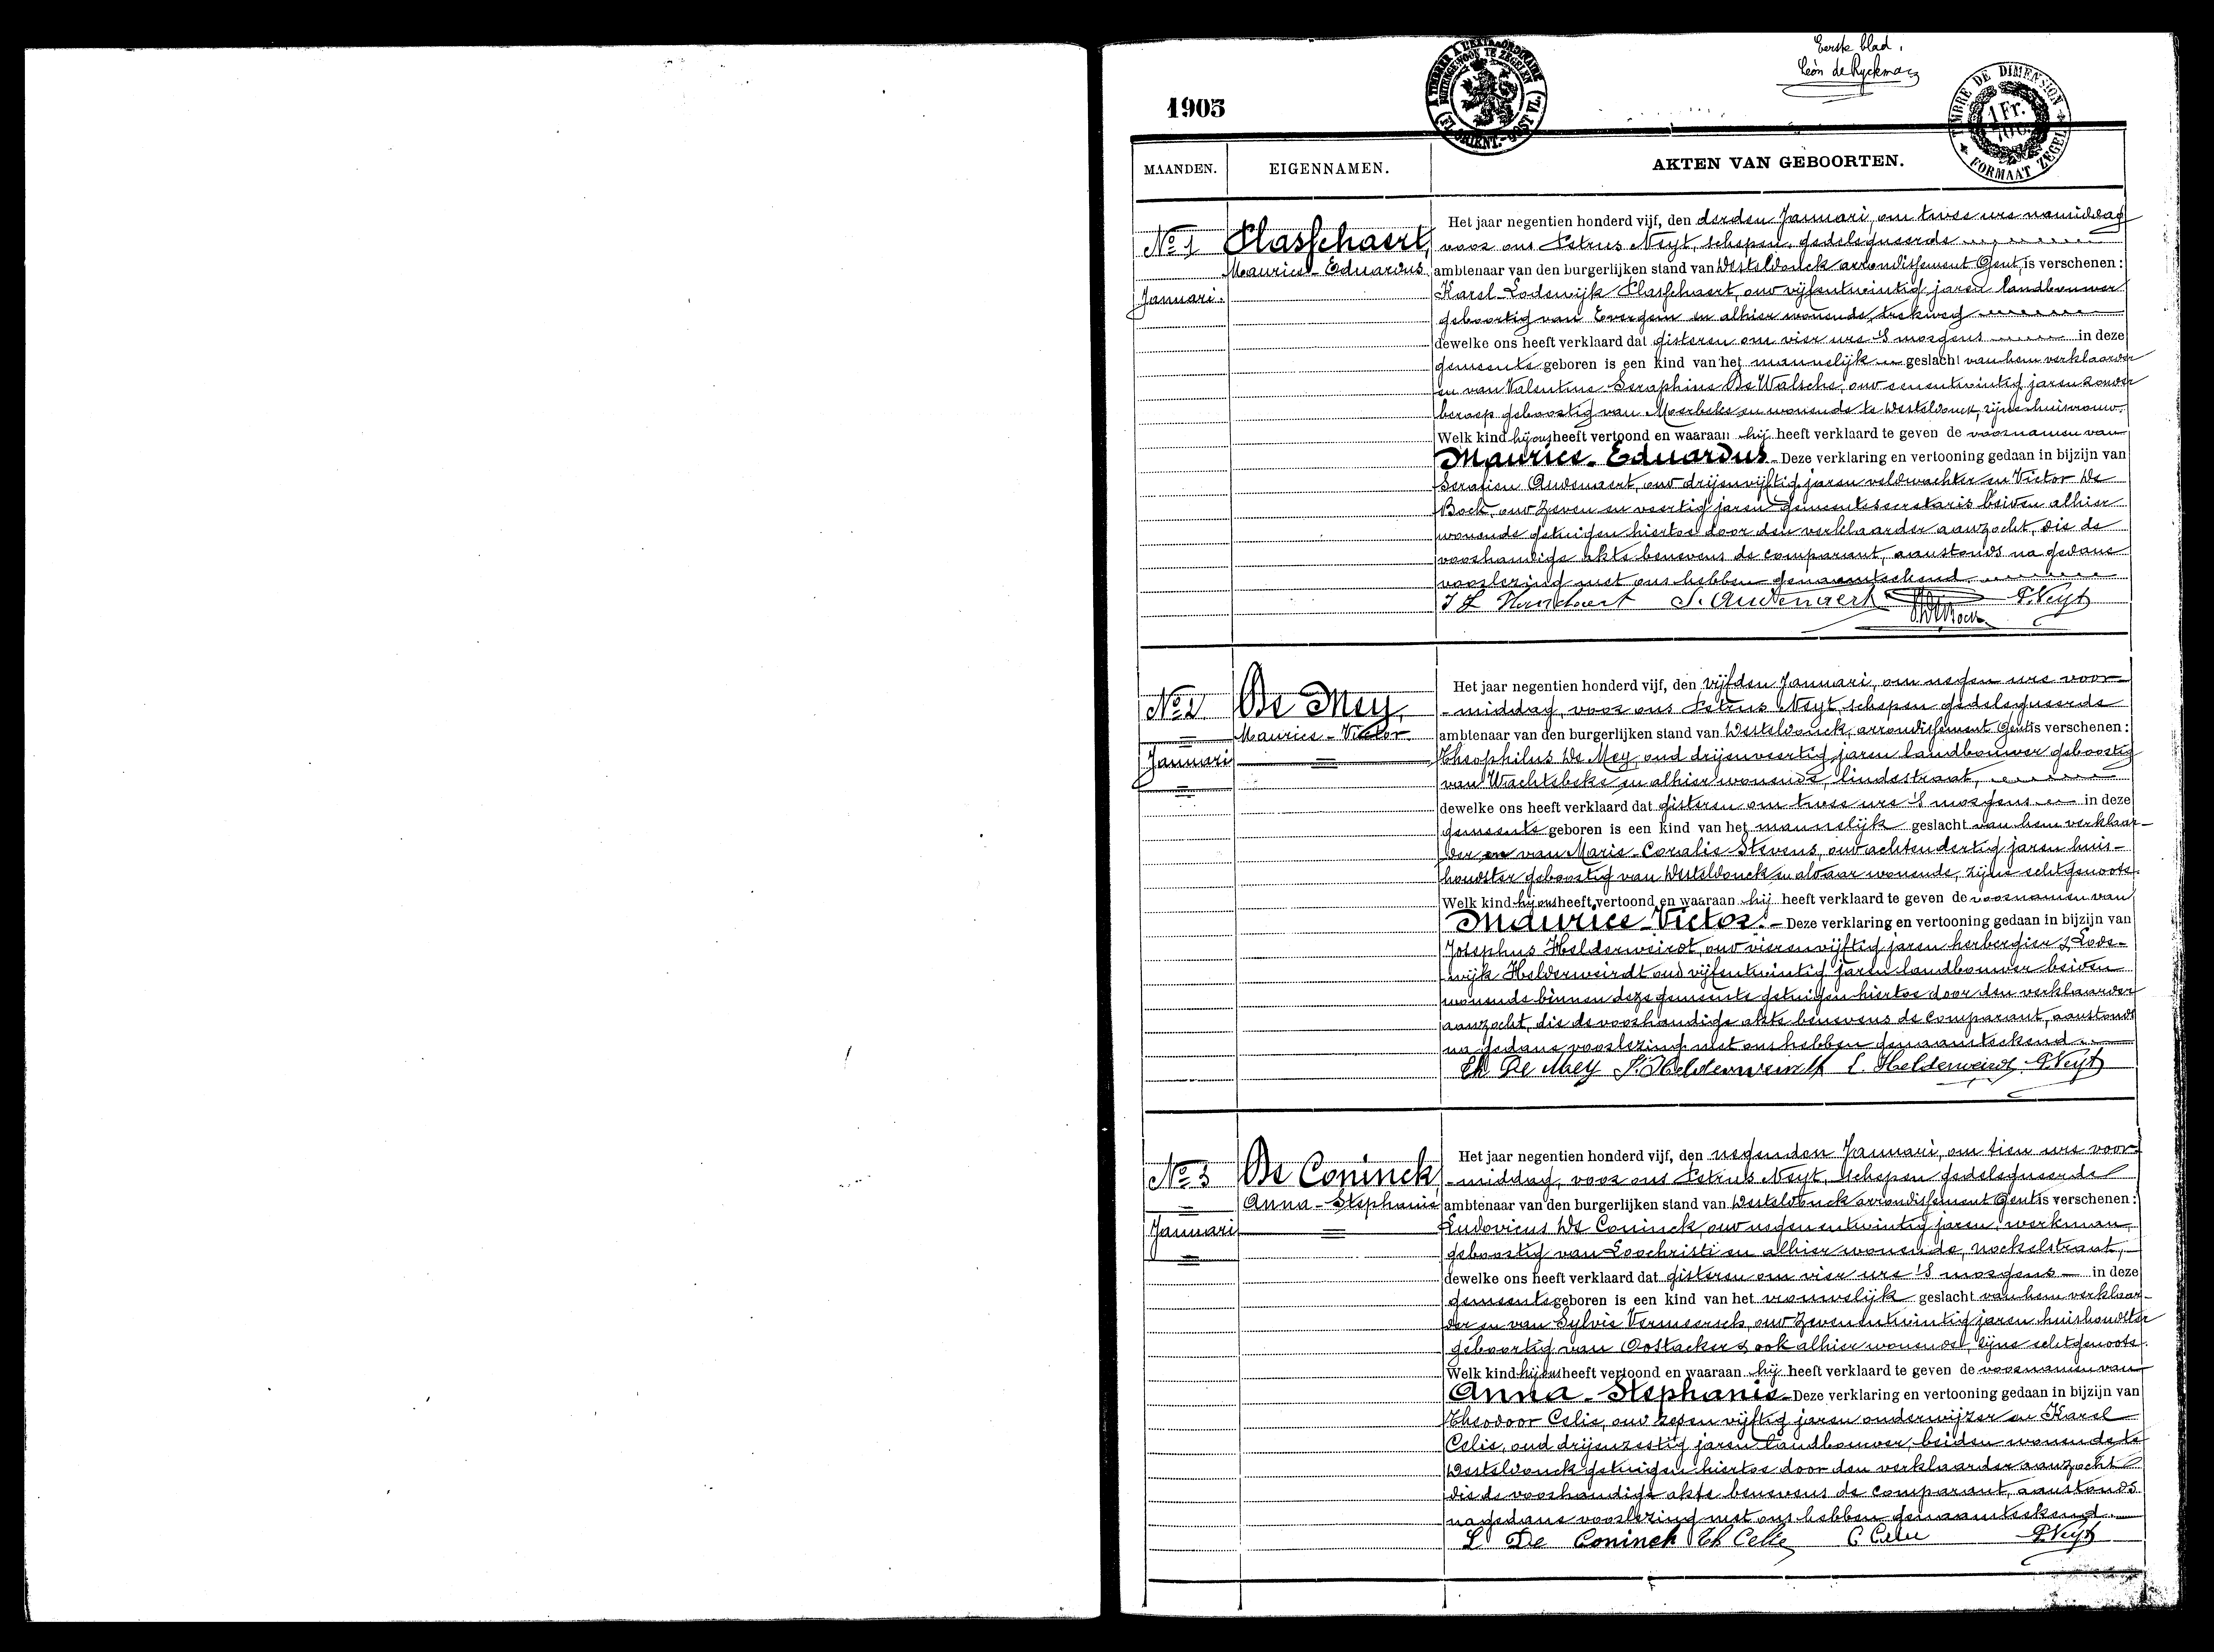 Eerste blad.
Léon de Ryckman
1905
A TIMBRER A L'EXTRAORDINAIRE (FL. ORIENT.-OOST VL.)
BUITENGEWOON TE ZEGELEN
TIMBRE DE DIMENSION FORMAAT ZEGEL
1 Fr.
MAANDEN. EIGENNAMEN. AKTEN VAN GEBOORTEN.
No 1
Januari.
Plasschaert,
Maurice-Eduardus
Het jaar negentien honderd vijf, den derden Januari, om twee ure namiddag
voor ons Petrus Neyt, schepen, gedelegueerde
ambtenaar van den burgerlijken stand van Desteldonck arrondissement Gent, is verschenen:
Karel-Lodewijk Plasschaert, oud vijfentwintig jaren landbouwer
geboortig van Evergem en alhier wonende, trekweg
dewelke ons heeft verklaard dat gisteren om vier ure 's morgens in deze
gemeente geboren is een kind van het mannelijk geslacht van hem verklaarder
en van Valentine-Seraphine De Walsche, oud eenentwintig jaren zonder
beroep geboortig van Moerbeke en wonende te Desteldonck, zijne huisvrouw.
Welk kind hij ons heeft vertoond en waaraan hij heeft verklaard te geven de voornamen van
Maurice-Eduardus - Deze verklaring en vertooning gedaan in bijzijn van
Serafien Audenaert, oud drijenvijftig jaren veldwachter en Victor De
Bock, oud zeven en veertig jaren gemeentesecretaris beiden alhier
wonende getuigen hiertoe door den verklaarder aanzocht, die de
voorhandige akte benevens de comparant, aanstonds na gedane
voorlezing met ons hebben genaamteekend
S. Audenaert P. Neyt
V. De Bock
No 2
Januari
De Mey,
Maurice-Victor
Het jaar negentien honderd vijf, den vijfden Januari, om negen ure voor-
-middag, voor ons Petrus Neyt, schepen gedelegueerde
ambtenaar van den burgerlijken stand van Desteldonck, arrondissement Gent is verschenen:
Theophilus De Mey, oud drijenveertig jaren landbouwer geboortig
van Wachtebeke en alhier wonende, lindestraat,
dewelke ons heeft verklaard dat gisteren om twee ure 's morgens in deze
gemeente geboren is een kind van het mannelijk geslacht van hem verklaar-
der en van Marie-Coralie Stevens, oud achtendertig jaren huis-
houdster geboortig van Desteldonck en aldaar wonende, zijne echtgenoote.
Welk kind hij ons heeft vertoond en waaraan hij heeft verklaard te geven de voornamen van
Maurice-Victor. - Deze verklaring en vertooning gedaan in bijzijn van
Josephus Helderweirdt, oud vierenvijftig jaren herbergier & Lode-
wijk Helderweirdt oud vijfentwintig jaren landbouwer beiden
wonende binnen deze gemeente getuigen hiertoe door den verklaarder
aanzocht, die de voorhandige akte benevens de comparant, aanstonds
na gedane voorlezing met ons hebben genaamteekend.
Th De Mey J. Helderweirdt L. Helderweirdt P. Neyt
No 3
Januari
De Coninck
Anna-Stephanie
Het jaar negentien honderd vijf, den negenden Januari, om tien ure voor-
-middag, voor ons Petrus Neyt, schepen gedelegueerde
ambtenaar van den burgerlijken stand van Desteldonck arrondissement Gent is verschenen:
Ludovicus De Coninck, oud negenentwintig jaren, werkman,
geboortig van Loochristi en alhier wonende, nockelstraat,
dewelke ons heeft verklaard dat gisteren om vier ure 's morgens in deze
gemeente geboren is een kind van het vrouwelijk geslacht van hem verklaar-
der en van Sylvie Vermeersch, oud zevenentwintig jaren huishoudster
geboortig van Oostacker & ook alhier wonende, zijne echtgenoote.
Welk kind hij ons heeft vertoond en waaraan hij heeft verklaard te geven de voornamen van
Anna-Stephanie - Deze verklaring en vertooning gedaan in bijzijn van
Theodoor Celie, oud zesenvijftig jaren onderwijzer en Karel
Celie, oud drijenzestig jaren landbouwer, beiden wonende te
Desteldonck getuigen hiertoe door den verklaarder aanzocht
die de voorhandige akte benevens de comparant, aanstonds
na gedane voorlezing met ons hebben genaamteekend.
L De Coninck Th Celie C Celie P. Neyt